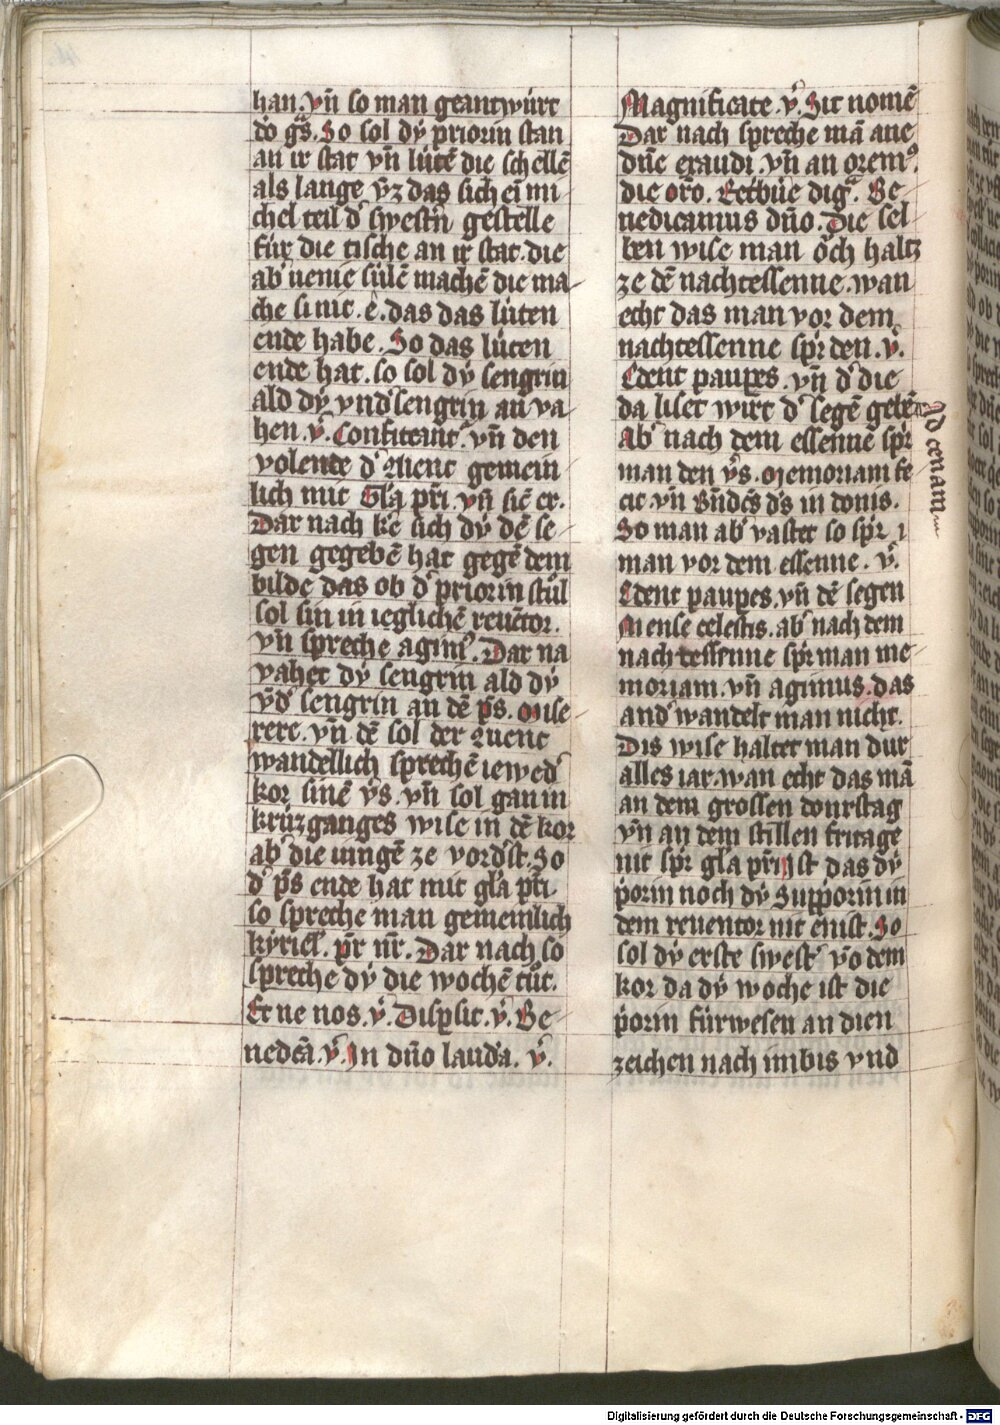 han. vn̄ so man geantwúrt
do gr̃s. So sol dẏ priorin stan
an ir stat vn̄ lútē die schellē
als lange vͮz das sich ei᷑ mi
chel teil d᷑ swestn᷑ gestelle
fúr die tische an ir stat. die
ab᷑ venie súlē machē die ma
che si nit. e᷑. das das lúten
ende habe. So das lúten
ende hat. so sol dẏ sengrin
ald dẏ vnd᷑sengrin an va
hen. v᷑. Confiteant᷑. vn̄ den
volende d᷑ Quent gemein
lich mit Gl᷑a pr̄i. vn̄ sic̄ er.
Dar nach ke᷑ sich dẏ dē se
gen gegebē hat gegē dem
bilde das ob d᷑ priorin stůl
sol sin in ieglichē reuētor.
vn̄ spreche agim᷑. Dar na
vahet dẏ sengrin ald dẏ
vn̄d᷑ sengrin an dē ps̄. Mise
rere. vn̄ dē sol der Quent
wandellich sprechē iewed᷑
kor sinē v᷑s. vn̄ sol gan in
krúzganges wise in dē kor
ab᷑ die iungē ze vord᷑st. So
d᷑ ps̄ ende hat mit gl᷑a pr̄i.
so spreche man gemeinlich
kẏriel᷑. pr̄ nr̄. Dar nach so
spreche dẏ die wochē tůt.
Et ne nos. v᷑. Disp̱sit. v᷑. Be
nedcā. v᷑. In dn̄o lauda. v᷑.
Magnificate. v᷑. Sit nomē
Dar nach spreche mā ane
dn̄e exaudi. vn̄ an orem᷑.
die oro. Retbūe dig᷑. Be
nedicamus dn̄o. Die sel
ben wise man ôch haltz
ze dē nachtessenne. wan
echt das man vor dem
nachtessenne spr᷑ den. v᷑.
Edent paup̱es. vn̄ d᷑ die
da liset wirt d᷑ segē gebē
Ad cenam
ab᷑ nach dem essenne spr᷑
man den v᷑s. Memoriam fe
cit. vn̄ Bn̄dc̄s d᷑s in donis.
So man ab᷑ vastet so spr᷑ i
man vor dem essenne. v᷑.
Edent paup̱es. vn̄ dē segen
Mense celestis. ab᷑ nach dem
nachtessenne spr᷑ man me
moriam. vn̄ agimus. das
and᷑ wandelt man nicht.
Dis wise haltet man dur
alles iar. wan echt das mā
an dem grossen donrstag
vn̄ an dem stillen fritage
nit spr᷑ gl᷑a pr̄i Ist das dẏ
p᷑orin noch dẏ Supp᷑orin in
dem reuentor nit enist. So
sol dẏ erste swest᷑ vō dem
kor da dẏ woche ist die
p᷑orin fúrwesen an dien
zeichen nach imbis vnd
Digitalisierung gefördert durch die Deutsche Forschungsgemeinschaft - DFG